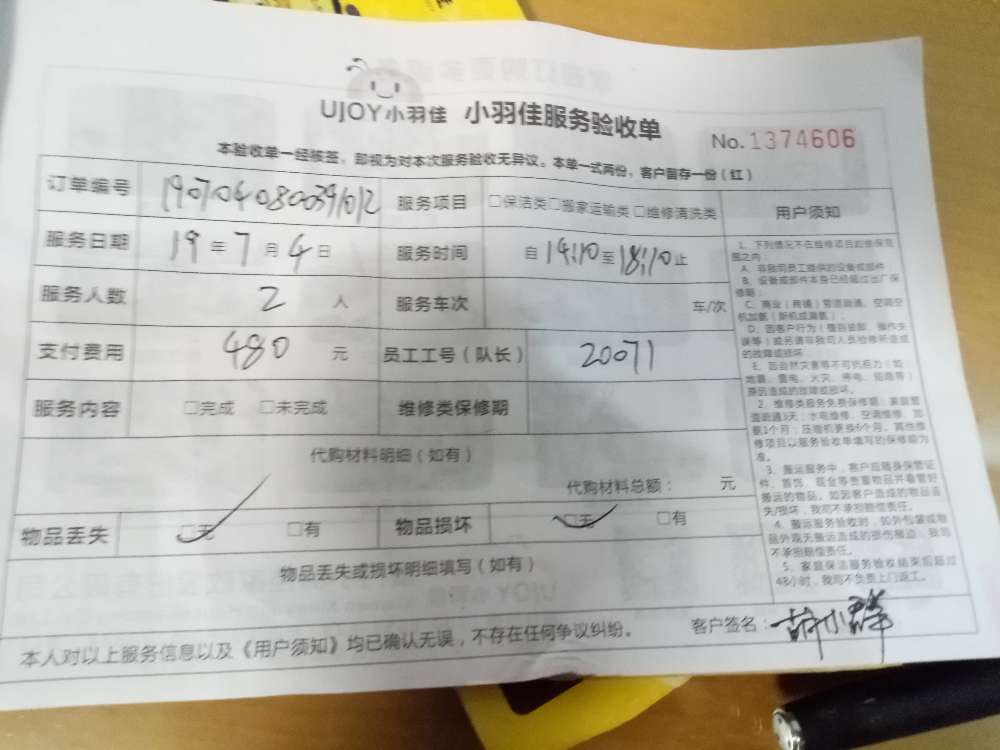 UJOY小羽佳 小羽佳服务验收单
No.1374606
本验收单一经核签，即视为对本次服务验收无异议。本单一式两份，客户留存一份（红）
订单编号 1907040800391012 服务项目 □保洁类□搬家运输类□维修清洗类
服务日期 19年7月4日 服务时间 自14:10至18:10止
服务人数 2人 服务车次 车/次
支付费用 480元 员工工号（队长） 20071
服务内容 □完成 □未完成 维修类保修期
代购材料明细（如有）
代购材料总额： 元
物品丢失 □无 □有 物品损坏 □无 □有
物品丢失或损坏明细填写（如有）
本人对以上服务信息以及《用户须知》均已确认无误，不存在任何争议纠纷。
客户签名：胡小群
用户须知
1、下列情况不在维修项目的维保范
围之内：
A、非我司员工提供的设备或部件
B、设备或部件本身已经超过出厂保
修期；
C、商业（商铺）管道疏通、空调空
机加氨（新机或漏氨）；
D、因客户行为（擅自拆卸、操作失
误等）或另请非我司人员检修所造成
的故障或损坏
E、因自然灾害等不可抗拒力（如
地震、雷电、火灾、停电、短路等）
原因造成的故障或损坏。
2、维修类服务免费保修期：家庭管
道疏通3天；水电维修、空调维修、加
氨1个月；压缩机更换6个月。其他维
修项目以服务验收单填写的保修期为
准。
3、搬运服务中，客户应随身保管证
件、首饰、现金等贵重物品并看管好
搬运的物品。如因客户造成的物品丢
失/损坏，我司不承担赔偿责任。
4、搬运服务验收时，如外包装或物
品外观无搬运造成的损伤痕迹，我司
不承担赔偿责任。
5、家庭保洁服务验收结束后超过
48小时，我司不负责上门返工。